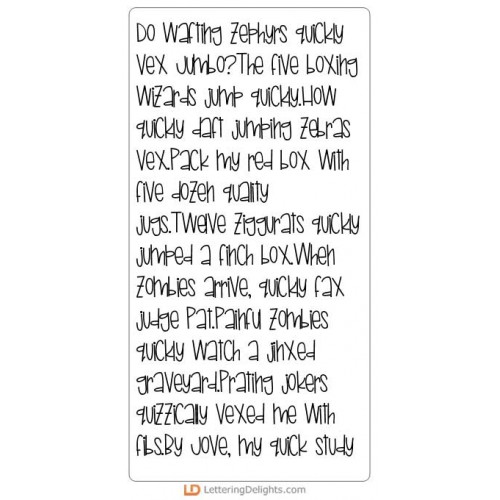 Do wafting zephyrs quickly
vex Jumbo?The five boxing
wizards jump quickly.How
quickly daft jumping zebras
vex.Pack my red box with
five dozen quality
jugs.Twelve ziggurats quicky
jumped a finch box.When
zombies arrive, quicky fax
judge Pat.Painful zombies
quicky watch a jinxed
graveyard.Prating jokers
quizzically vexed me with
fibs.By Jove, my quick study
LD LetteringDelights.com